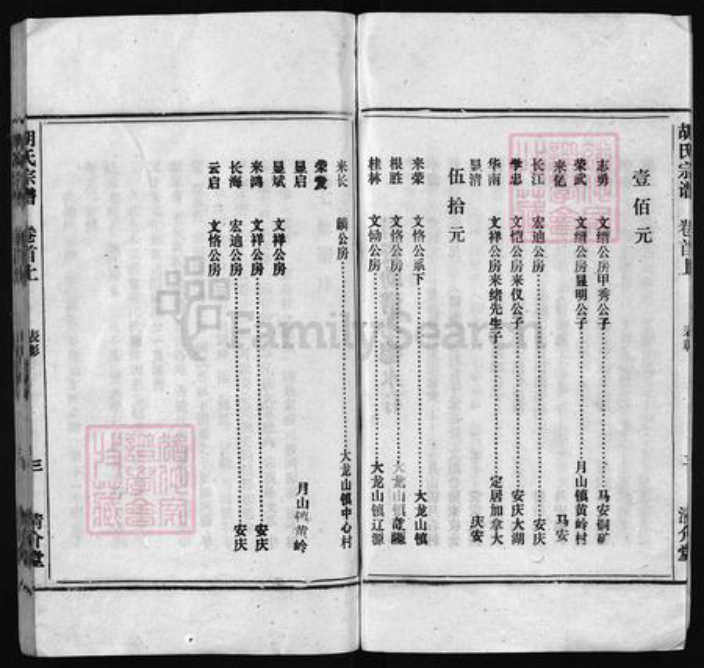 胡氏宗谱 卷首上
清介堂
壹佰元
志勇 文缙公房甲秀公子 马安铜矿
荣武 文缙公房显明公子 月山镇黄岭村
来亿 马安
长江 宏迪公房 安庆
学忠 文恺公房来仪公子 安庆大湖
华南 文祥公房来绪先生子 定居加拿大
显清 庆安
伍拾元
来荣 文恪公系下 大龙山镇
根胜 文恪公房 大龙山镇
桂林 文恸公房 大龙山镇辽源
来长 麟公房 大龙山镇中心村
荣发
显启 月山镇黄岭
显斌 文祥公房
来鸿 文祥公房 安庆
长海 宏迪公房 安庆
云启 文恪公房
胡氏宗谱 卷首上 表彰 三 清介堂
FamilySearch